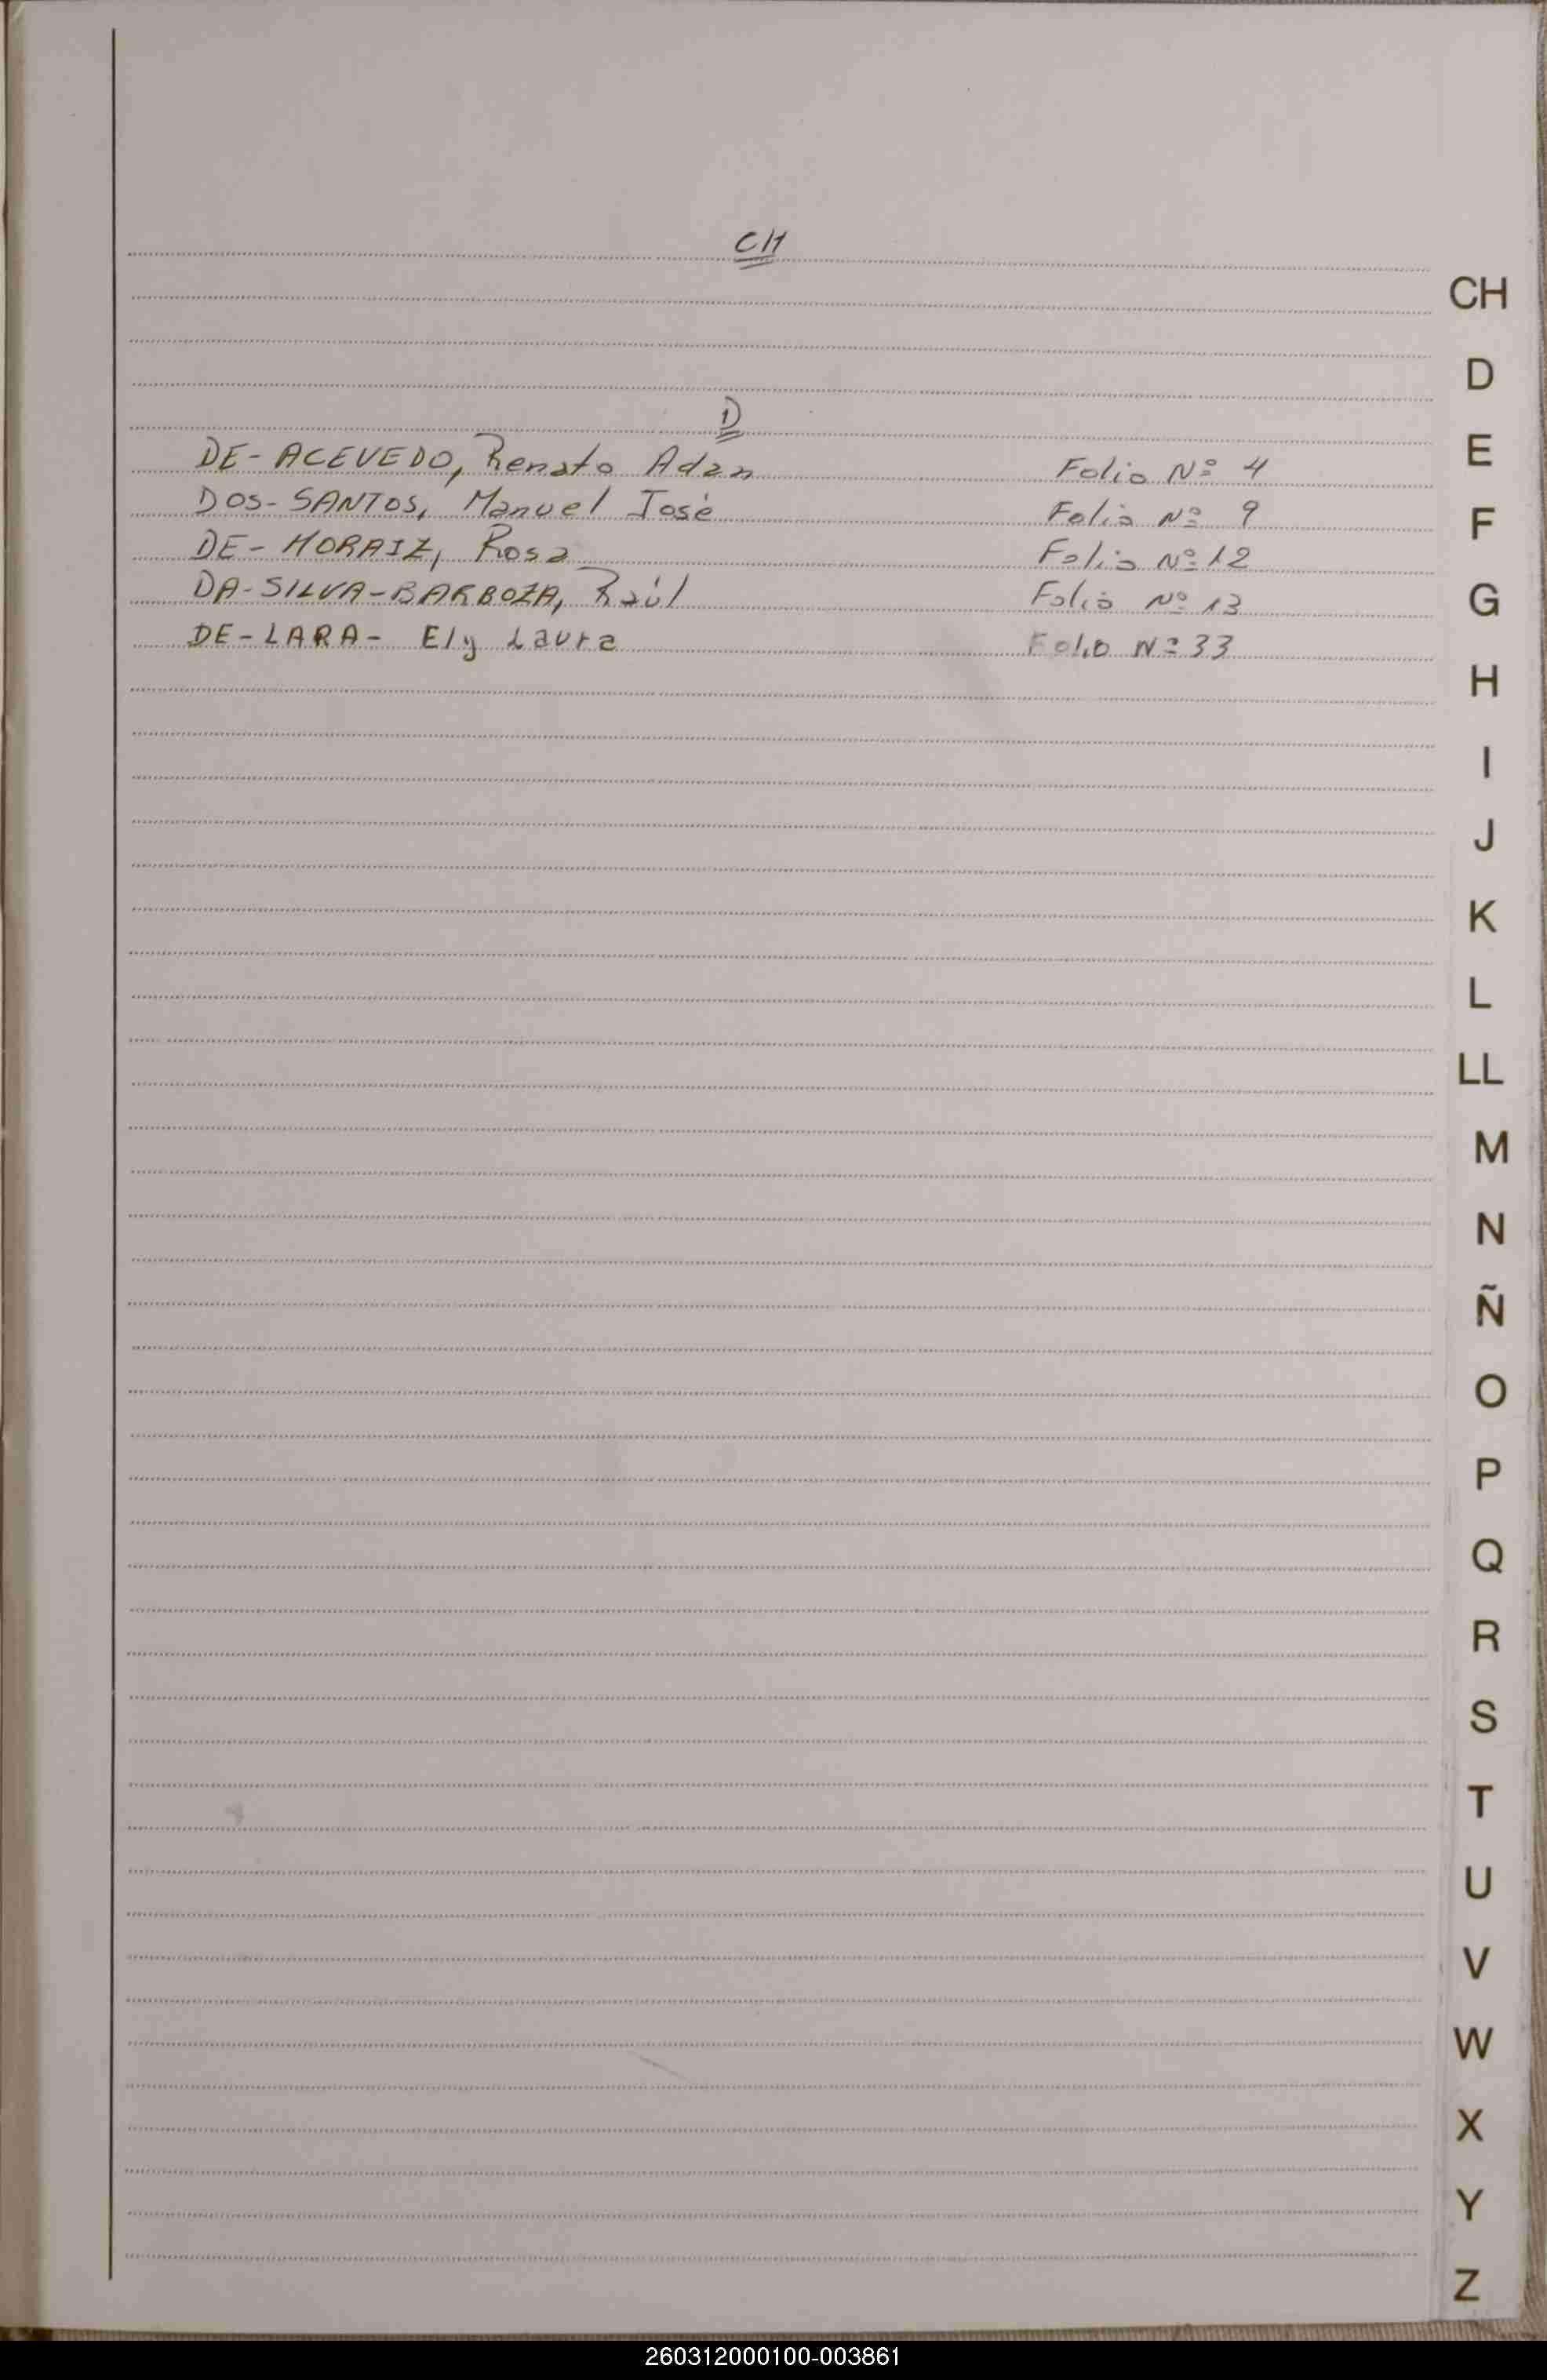 CH
D
DE-ACEVEDO, Renato Adan Folio Nº 4
DOS-SANTOS, Manuel José Folio Nº 9
DE-MORAIZ, Rosa Folio Nº 12
DA-SILVA-BARBOZA, Raúl Folio Nº 13
DE-LARA- Ely Laura Folio Nº 33
CH
D
E
F
G
H
I
J
K
L
LL
M
N
Ñ
O
P
Q
R
S
T
U
V
W
X
Y
Z
260312000100-003861